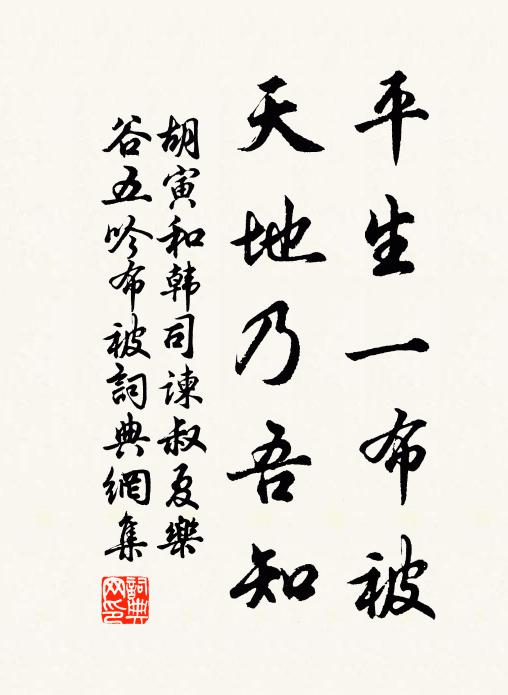 平生一布被
天地乃吾知
胡寅和韩司谏叔夏樂
谷五吟布被詞典網集
詞典网印